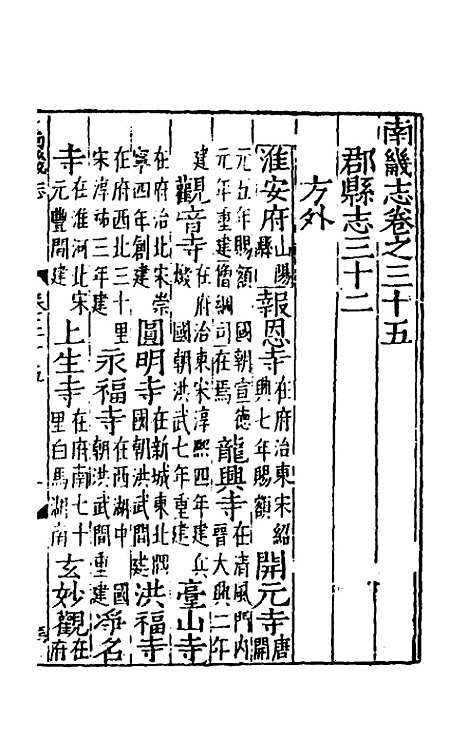 南畿志卷之三十五
郡縣志三十二
方外
淮安府山陽縣報恩寺在府治東宋紹興七年賜額開元寺唐開
元五年賜額 國朝宣德元年重建僧綱司在焉龍興寺在清風門内晉大興二年
建觀音寺在府治東宋淳熙四年建兵燬 國朝洪武七年重建臺山寺
在府治北宋崇寧四年創建圓明寺在新城東北隅國朝洪武間建洪福寺
在府西北三十里宋淳祐三年建永福寺在西湖中 國朝洪武間重建淨名
寺在淮河北宋元豐間建上生寺在府南七十里白馬湖南玄妙觀在府
南畿志 卷三十五 一